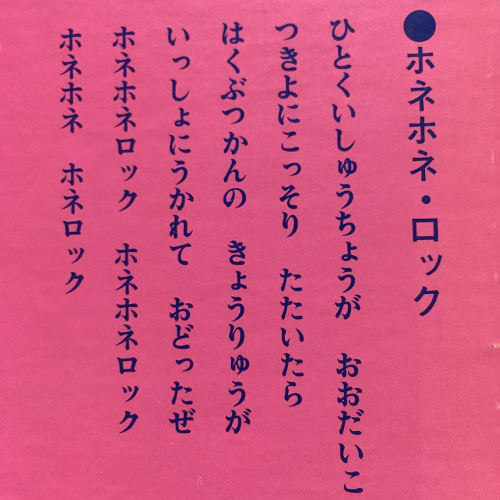 ●ホネホネ・ロック
ひとくいしゅうちょうが　おおだいこ
つきよにこっそり　たたいたら
はくぶつかんの　きょうりゅうが
いっしょにうかれて　おどったぜ
ホネホネロック　ホネホネロック
ホネホネ　ホネロック